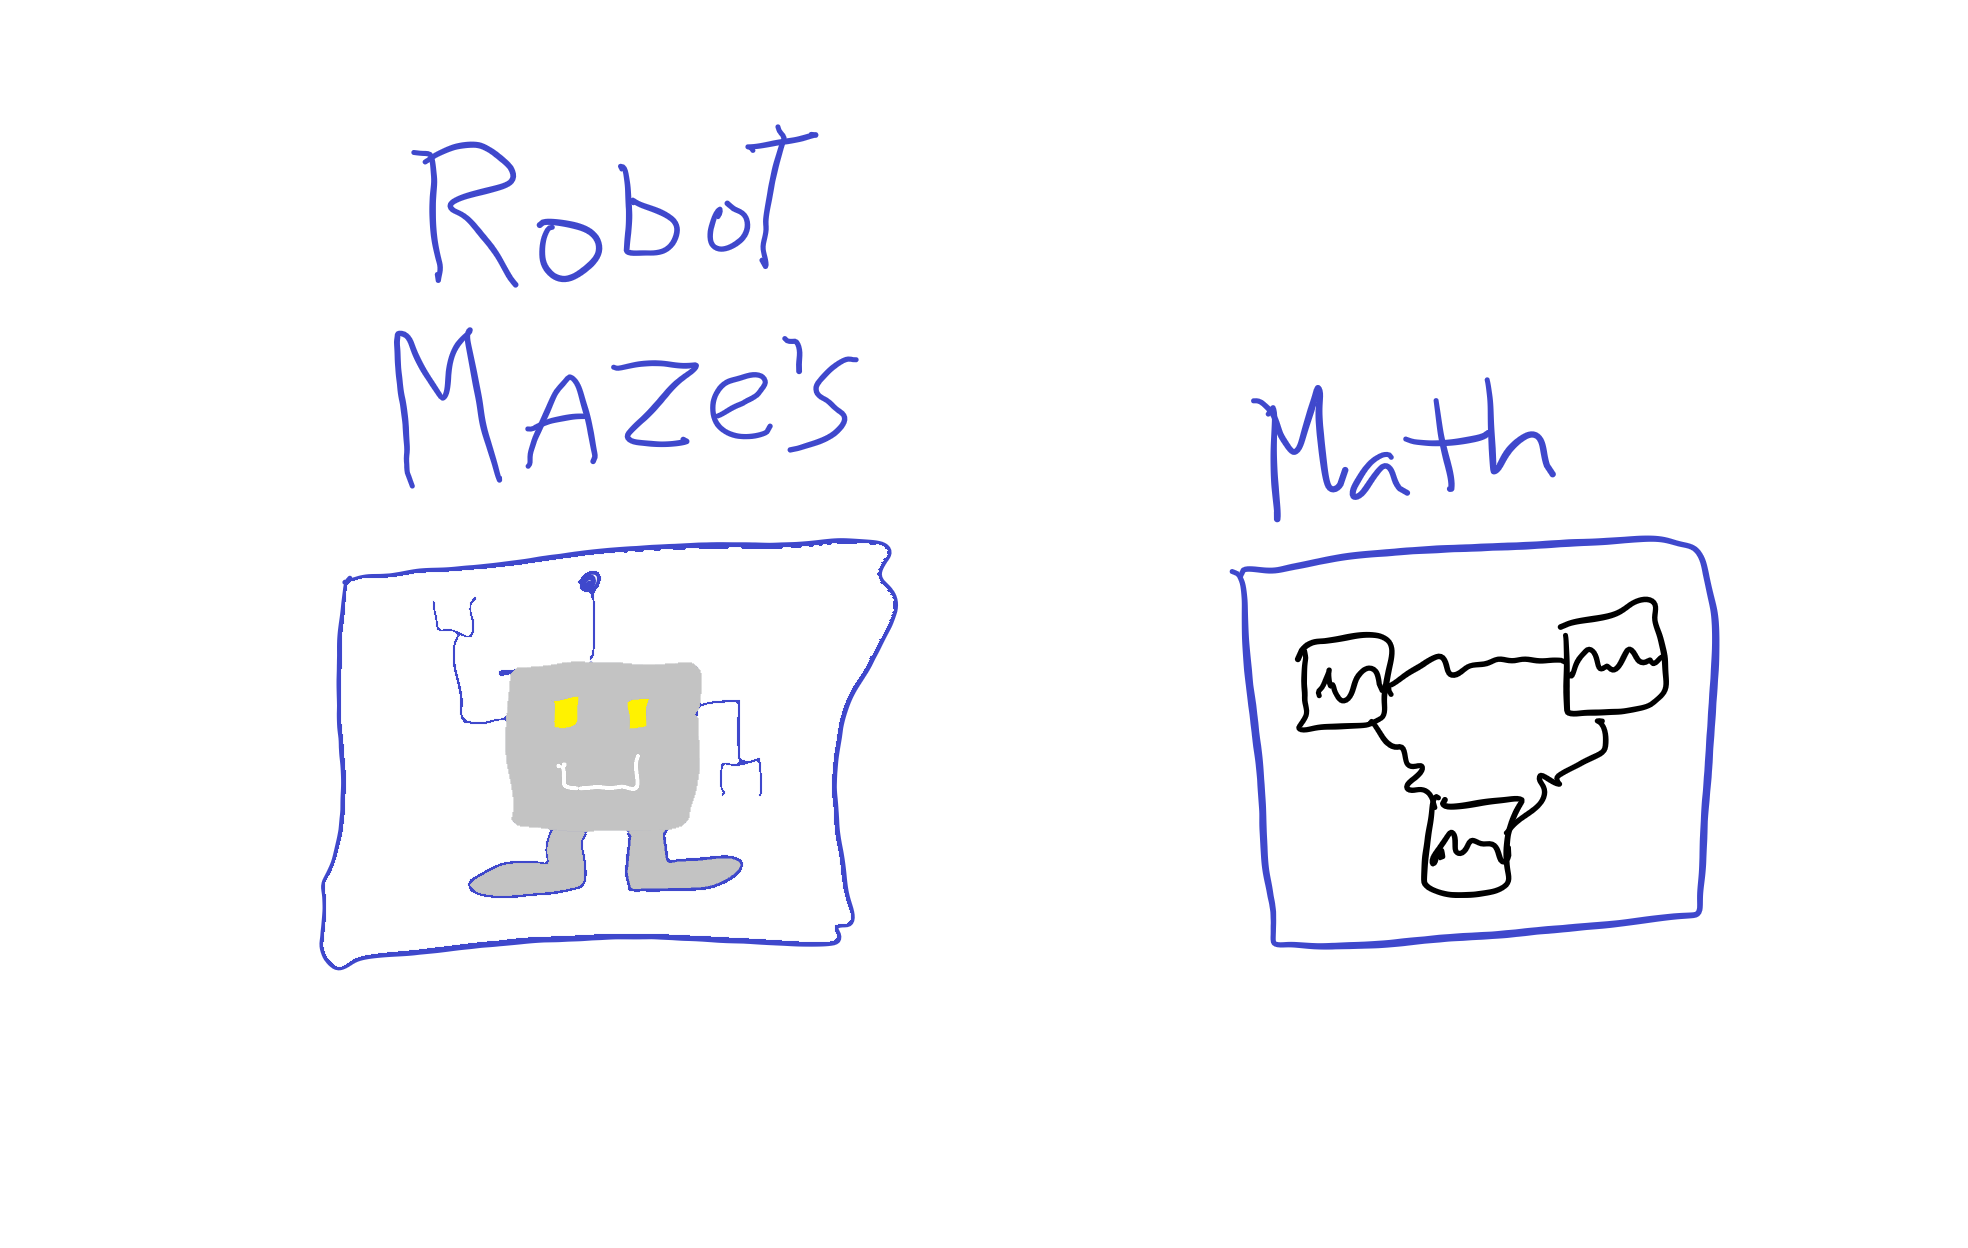 Robot
MAZe's
Math